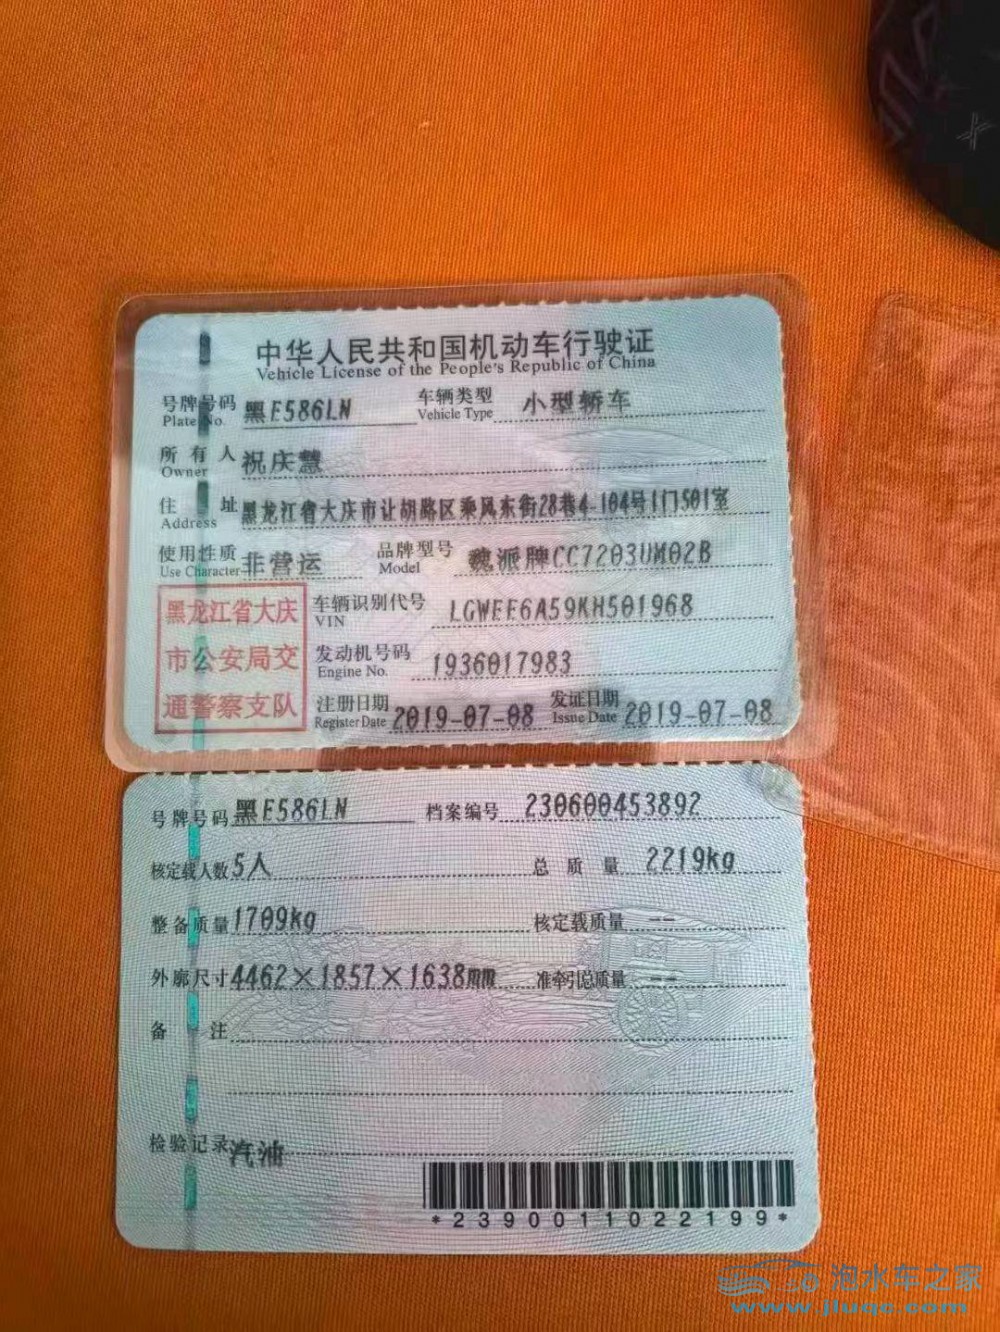 中华人民共和国机动车行驶证
Vehicle License of the People's Republic of China
号牌号码 黑E586LN 车辆类型 小型轿车
Plate No. Vehicle Type
所有人 祝庆慧
Owner
住址 黑龙江省大庆市让胡路区乘风东街28巷4-104号1门501室
Address
使用性质 非营运 品牌型号 魏派牌CC7203UM02B
Use Character Model
黑龙江省大庆
市公安局交
通警察支队
车辆识别代号 LGWEE6A59KH501968
VIN
发动机号码 1936017983
Engine No.
注册日期 2019-07-08 发证日期 2019-07-08
Register Date Issue Date
号牌号码 黑E586LN 档案编号 230600453892
核定载人数 5人 总质量 2219kg
整备质量 1709kg 核定载质量 --
外廓尺寸 4462×1857×1638mm 准牵引总质量 --
备注
检验记录 汽油
*2390011022199*
泡水车之家
www.jluqc.com